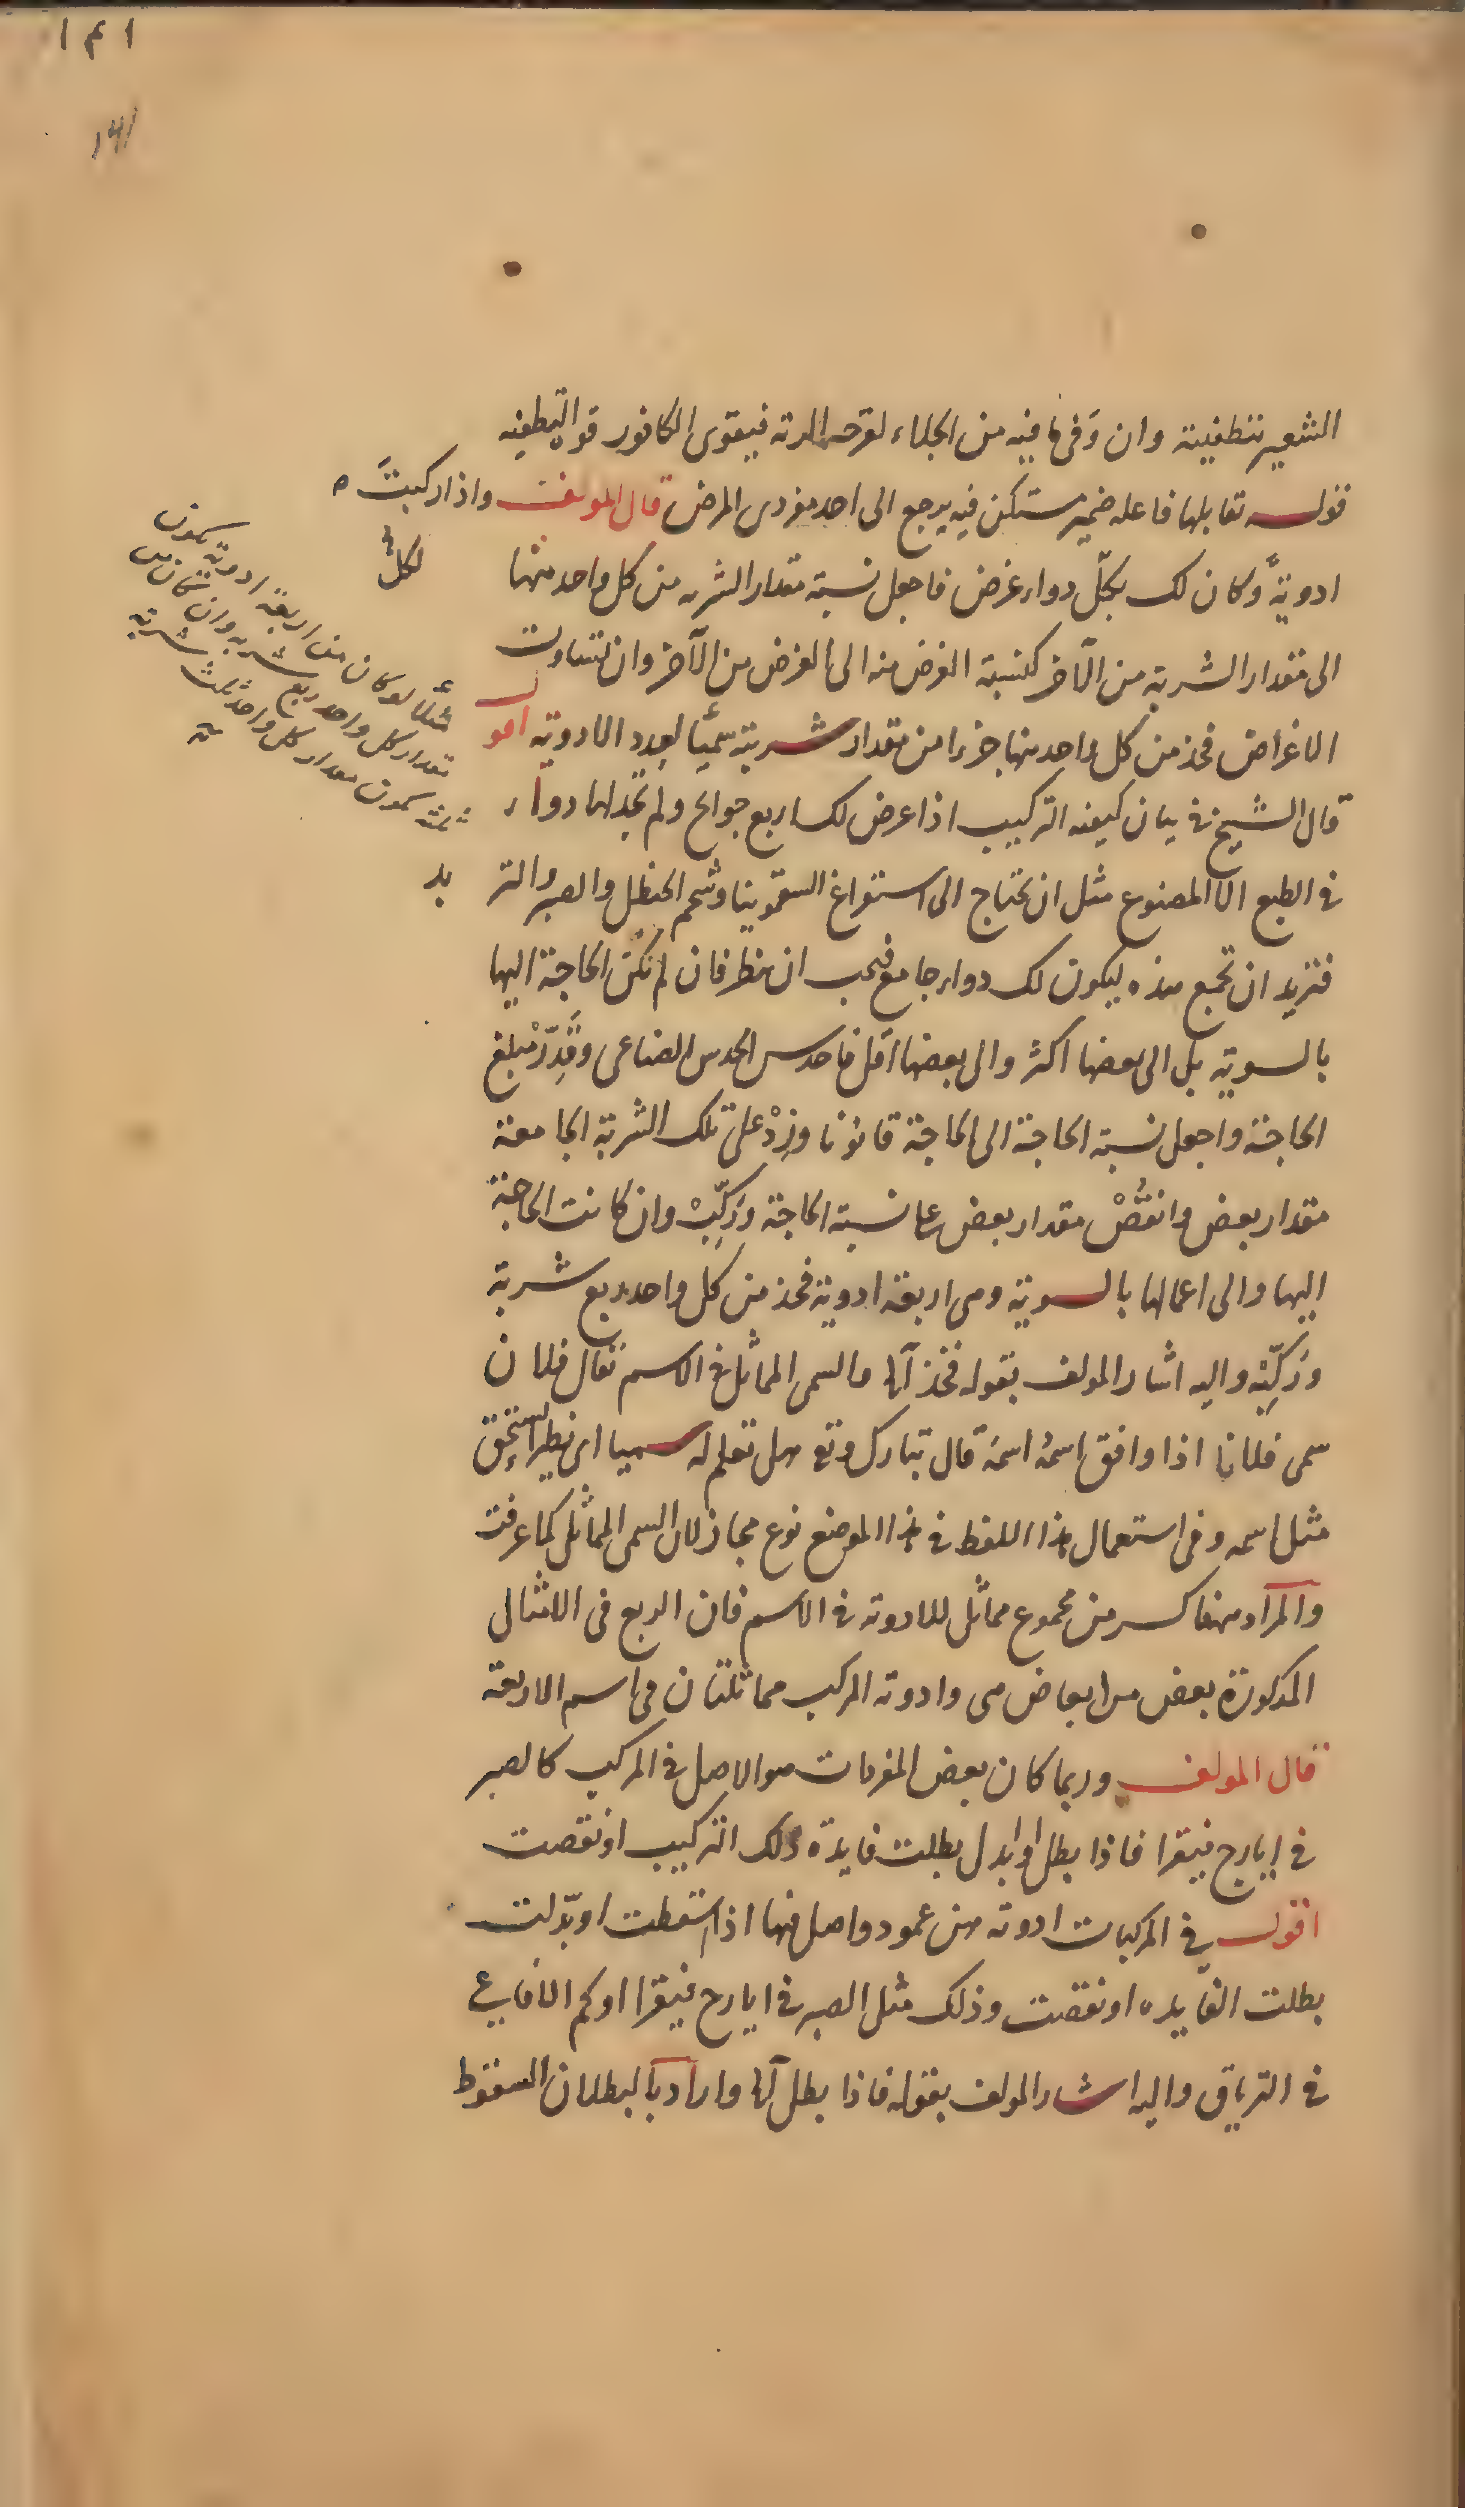 ١٤١
١٤١
الشعير بتطفيته وان وفى بما فيه من الجلاء لقرحه الرئة فيقوى الكافور قوة التطفيه
قوله تقابلها فاعله ضمير مستكن فيه يرجع الى احد مؤدى المرض قال المولف واذا ركبتَ
ادويةً وكان لك بكلّ دواء غرض فاجعل نسبة مقدار الشربه من كل واحد منها
لكل
الى مقدار الشربة من الآخر كنسبة الغرض منه الى الغرض من الآخر وان تساوت
الاغراض فخذ من كل واحد منها جزءا من مقدار شربة سميًّا لعدد الادوية اقول
قال الشيخ في بيان كيفيه التركيب اذا عرض لك اربع حوائج ولم تجد لها دواء
في الطبع الا المصنوع مثل ان تحتاج الى استفراغ السقمونيا وشحم الحنظل والصبر والتر بد
فتريد ان تجمع هذه ليكون لك دواء جامع فيجب ان ينظر فان لم تكن الحاجة اليها
بالسوية بل الى بعضها اكثر والى بعضها اقل فاحدس الحدس الصناعى وقَدِّرْ مبلغ
الحاجة واجعل نسبة الحاجة الى الحاجة قانونا وزِدْ على تلك الشربة الجامعة
مقدار بعض وانقُصْ مقدار بعض على نسبة الحاجة ورَكِّبْ وان كانت الحاجة
اليها والى اعمالها بالسوية وهى اربعة ادوية فخذ من كل واحد ربع شربة
ورَكِّبْه واليه اشار المولف بقوله فخذ الخ والسمى المماثل في الاسم يقال فلان
سمى فلانا اذا وافق اسمهُ اسمهُ قال تبارك وتع هل تعلم له سميا اى نظيرا يستحق
مثل اسمه وفى استعمال هذا اللفظ في هذا الموضع نوع مجاز لان السمى المماثل كما عرفت
والمراد ههنا كسر من مجموع مماثل للادويه في الاسم فان الربع فى الامثال
المذكورة بعض من ابعاض هى وادويه المركب مماثلتان فى اسم الاربعة
قال المولف وربما كان بعض المفردات هو الاصل في المركب كالصبر
في ايارج فيقرا فاذا بطل او ابدل بطلت فايدة ذلك التركيب او نقصت
اقول في المركبات ادويه هن عمود واصل فيها اذا سقطت او بدّلت
بطلت الفايده او نقصت وذلك مثل الصبر في ايارج فيقرا او لحم الافاعي
في الترياق واليه اشار المولف بقوله فاذا بطل الخ واراد بالبطلان السقوط
مثلا لو كان من اربعة ادوية يكون
مقدار كل واحد ربع شربه وان كان من
ثلثه يكون مقدار كل واحد ثلث شربة